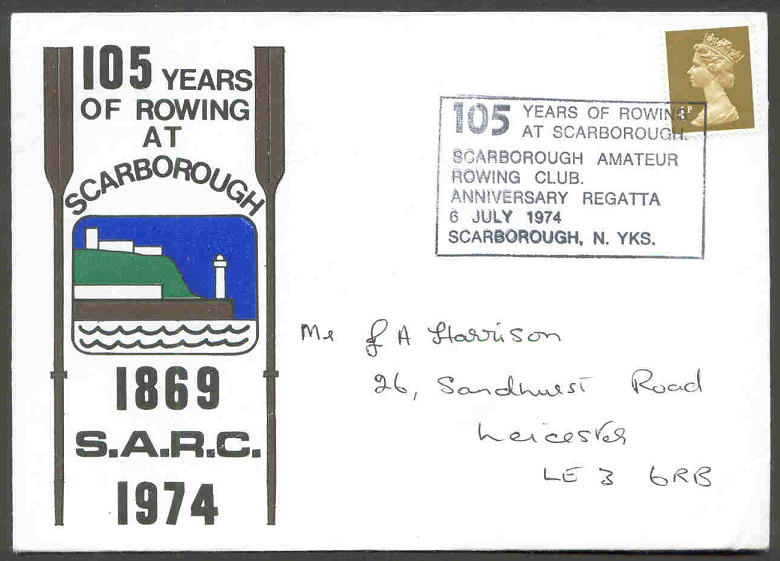 105 YEARS
OF ROWING
AT
SCARBOROUGH
1869
S.A.R.C.
1974
105 YEARS OF ROWING
AT SCARBOROUGH.
SCARBOROUGH AMATEUR
ROWING CLUB.
ANNIVERSARY REGATTA
6 JULY 1974
SCARBOROUGH, N. YKS.
Mr J A Harrison
26, Sandhurst Road
Leicester
LE 3 6RB